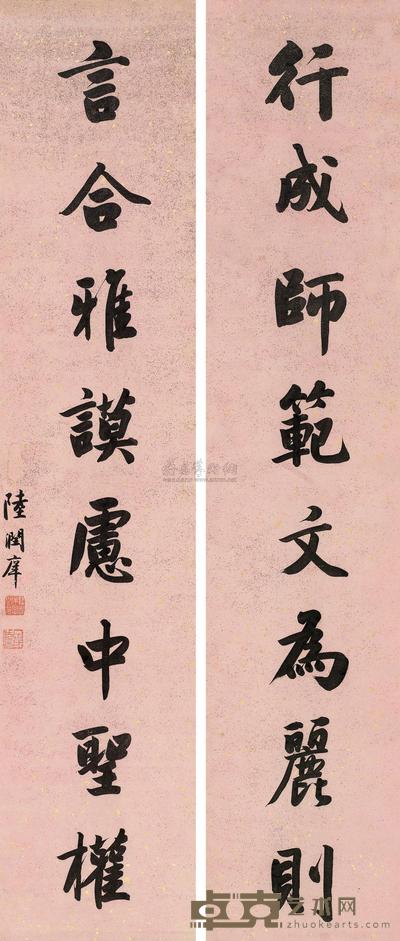 行成師範文為麗則
言合雅謨慮中聖權
陸潤庠
卓克艺术网
zhuokearts.com